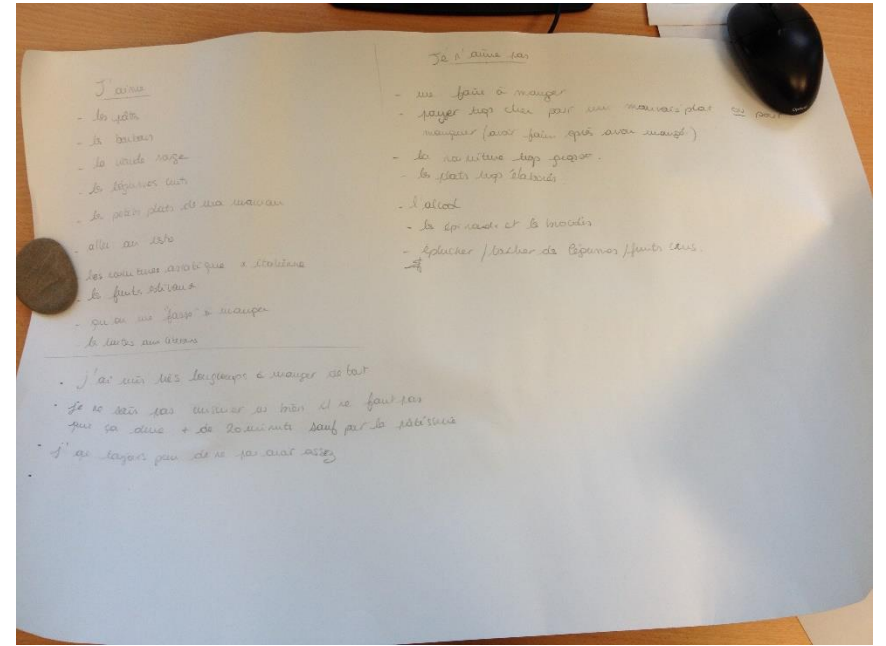 J'aime
- les pâtes
- les bonbons
- la viande rouge
- les légumes cuits
- les petits plats de ma maman
- aller au resto
- les fruits estivaux
- qu'on me fasse à manger
Je n'aime pas
- me faire à manger
- payer trop cher pour un mauvais plat ou pour
manquer (avoir faim après avoir mangé)
- la nourriture trop
- les plats trop élaborés
- l'alcool
- les épinards et le boudin
- éplucher / tailler des légumes / fruits crus.
- j'ai mis très longtemps à manger de tout
- je ne sais pas cuisiner ou bien il ne faut pas
que ça dure + de 20 minutes sauf pour la pâtisserie
- j'ai toujours peur de ne pas avoir assez